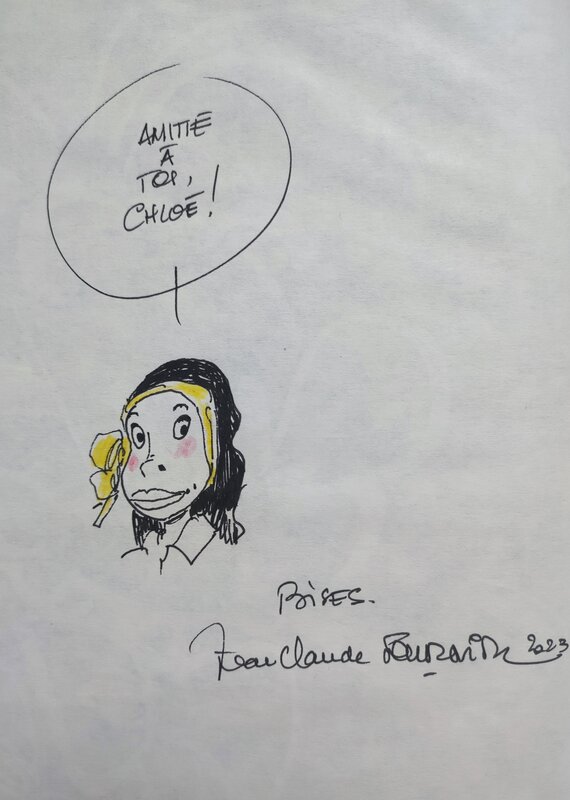 AMITIÉ
À
TOI,
CHLOÉ!
BISES.
Jean Claude FOURNIER 2023